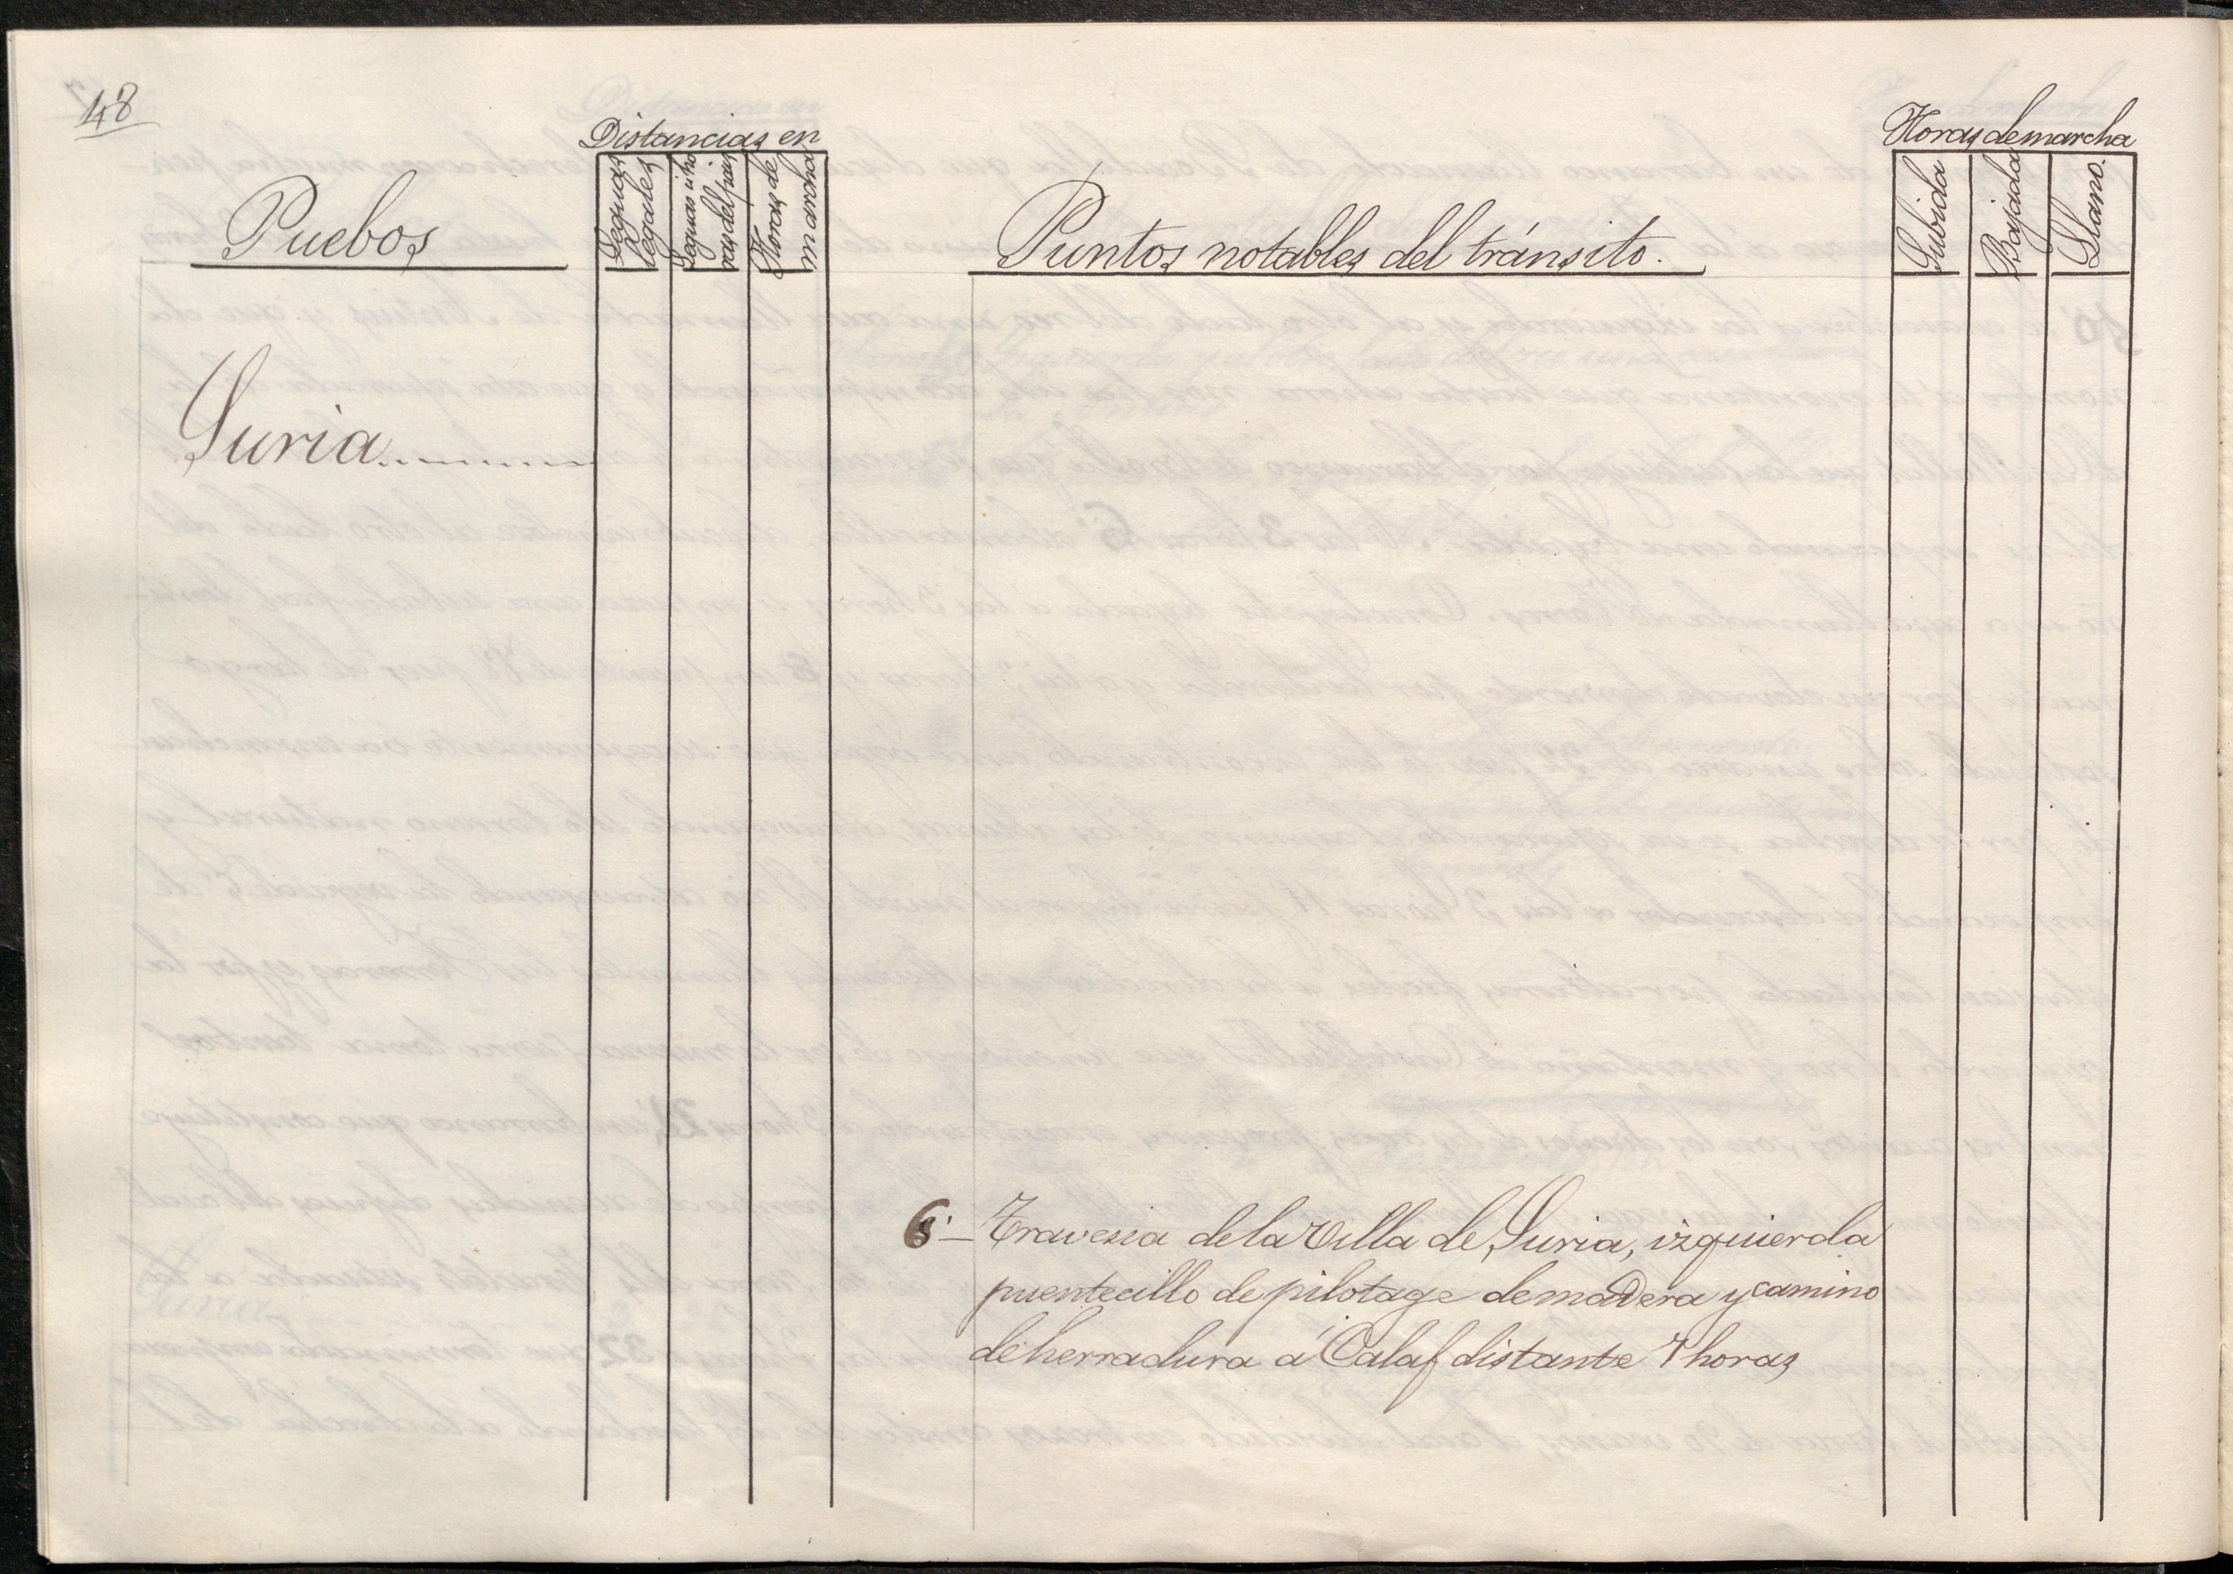 48
Distancias en
Horas de marcha
Puebos
Leguas legales
Leguas ú ho
ras del pais
Horas de marcha
Puntos notables del tránsito.
Subida
Bajada
Llano.
Suria
6' Travesia de la Villa de Suria, izquierda
puentecillo de pilotage de madera y camino
de herradura á Calaf distante 7 horas